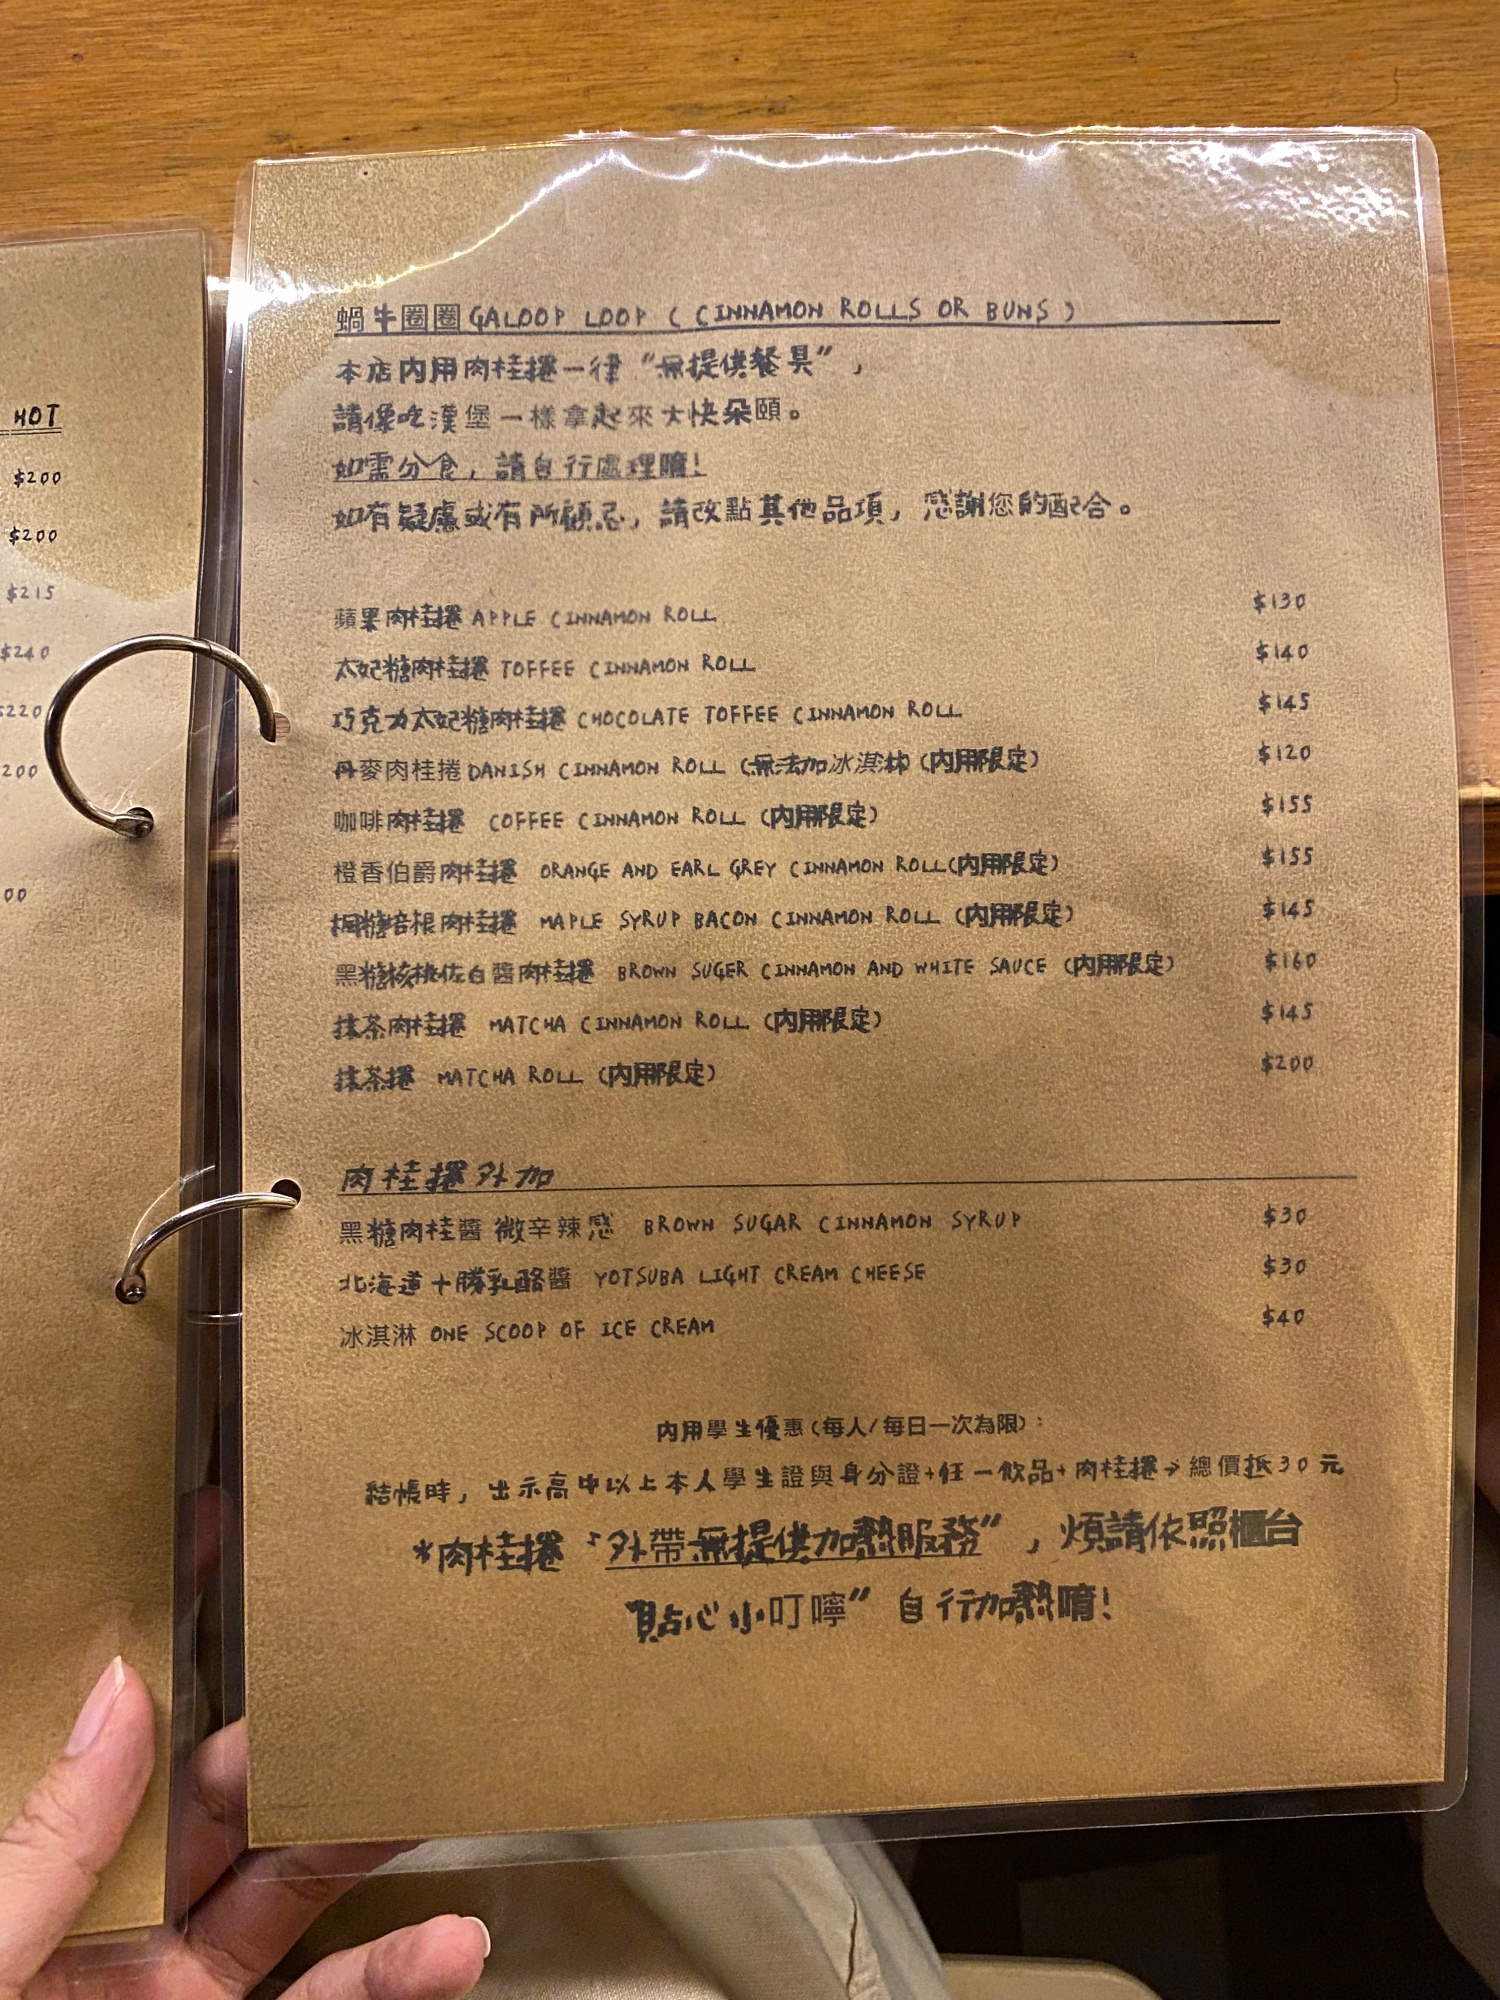 HOT
$200
$200
$215
$240
$220
200
00
蝸牛圈圈 GALOOP LOOP ( CINNAMON ROLLS OR BUNS )
本店內用肉桂捲一律“無提供餐具”,
請像吃漢堡一樣拿起來大快朵頤。
如需分食,請自行處理唷!
如有疑慮或有所顧忌,請改點其他品項,感謝您的配合。
蘋果肉桂捲 APPLE CINNAMON ROLL $130
太妃糖肉桂捲 TOFFEE CINNAMON ROLL $140
巧克力太妃糖肉桂捲 CHOCOLATE TOFFEE CINNAMON ROLL $145
丹麥肉桂捲 DANISH CINNAMON ROLL (無法加冰淇淋) (內用限定) $120
咖啡肉桂捲 COFFEE CINNAMON ROLL (內用限定) $155
橙香伯爵肉桂捲 ORANGE AND EARL GREY CINNAMON ROLL(內用限定) $155
楓糖培根肉桂捲 MAPLE SYRUP BACON CINNAMON ROLL (內用限定) $145
黑糖核桃佐白醬肉桂捲 BROWN SUGER CINNAMON AND WHITE SAUCE (內用限定) $160
抹茶肉桂捲 MATCHA CINNAMON ROLL (內用限定) $145
抹茶捲 MATCHA ROLL (內用限定) $200
肉桂捲外加
黑糖肉桂醬 微辛辣感 BROWN SUGAR CINNAMON SYRUP $30
北海道十勝乳酪醬 YOTSUBA LIGHT CREAM CHEESE $30
冰淇淋 ONE SCOOP OF ICE CREAM $40
內用學生優惠(每人/每日一次為限):
結帳時,出示高中以上本人學生證與身分證+任一飲品+肉桂捲→總價抵30元
*肉桂捲“外帶無提供加熱服務”,煩請依照櫃台
“貼心小叮嚀”自行加熱唷!